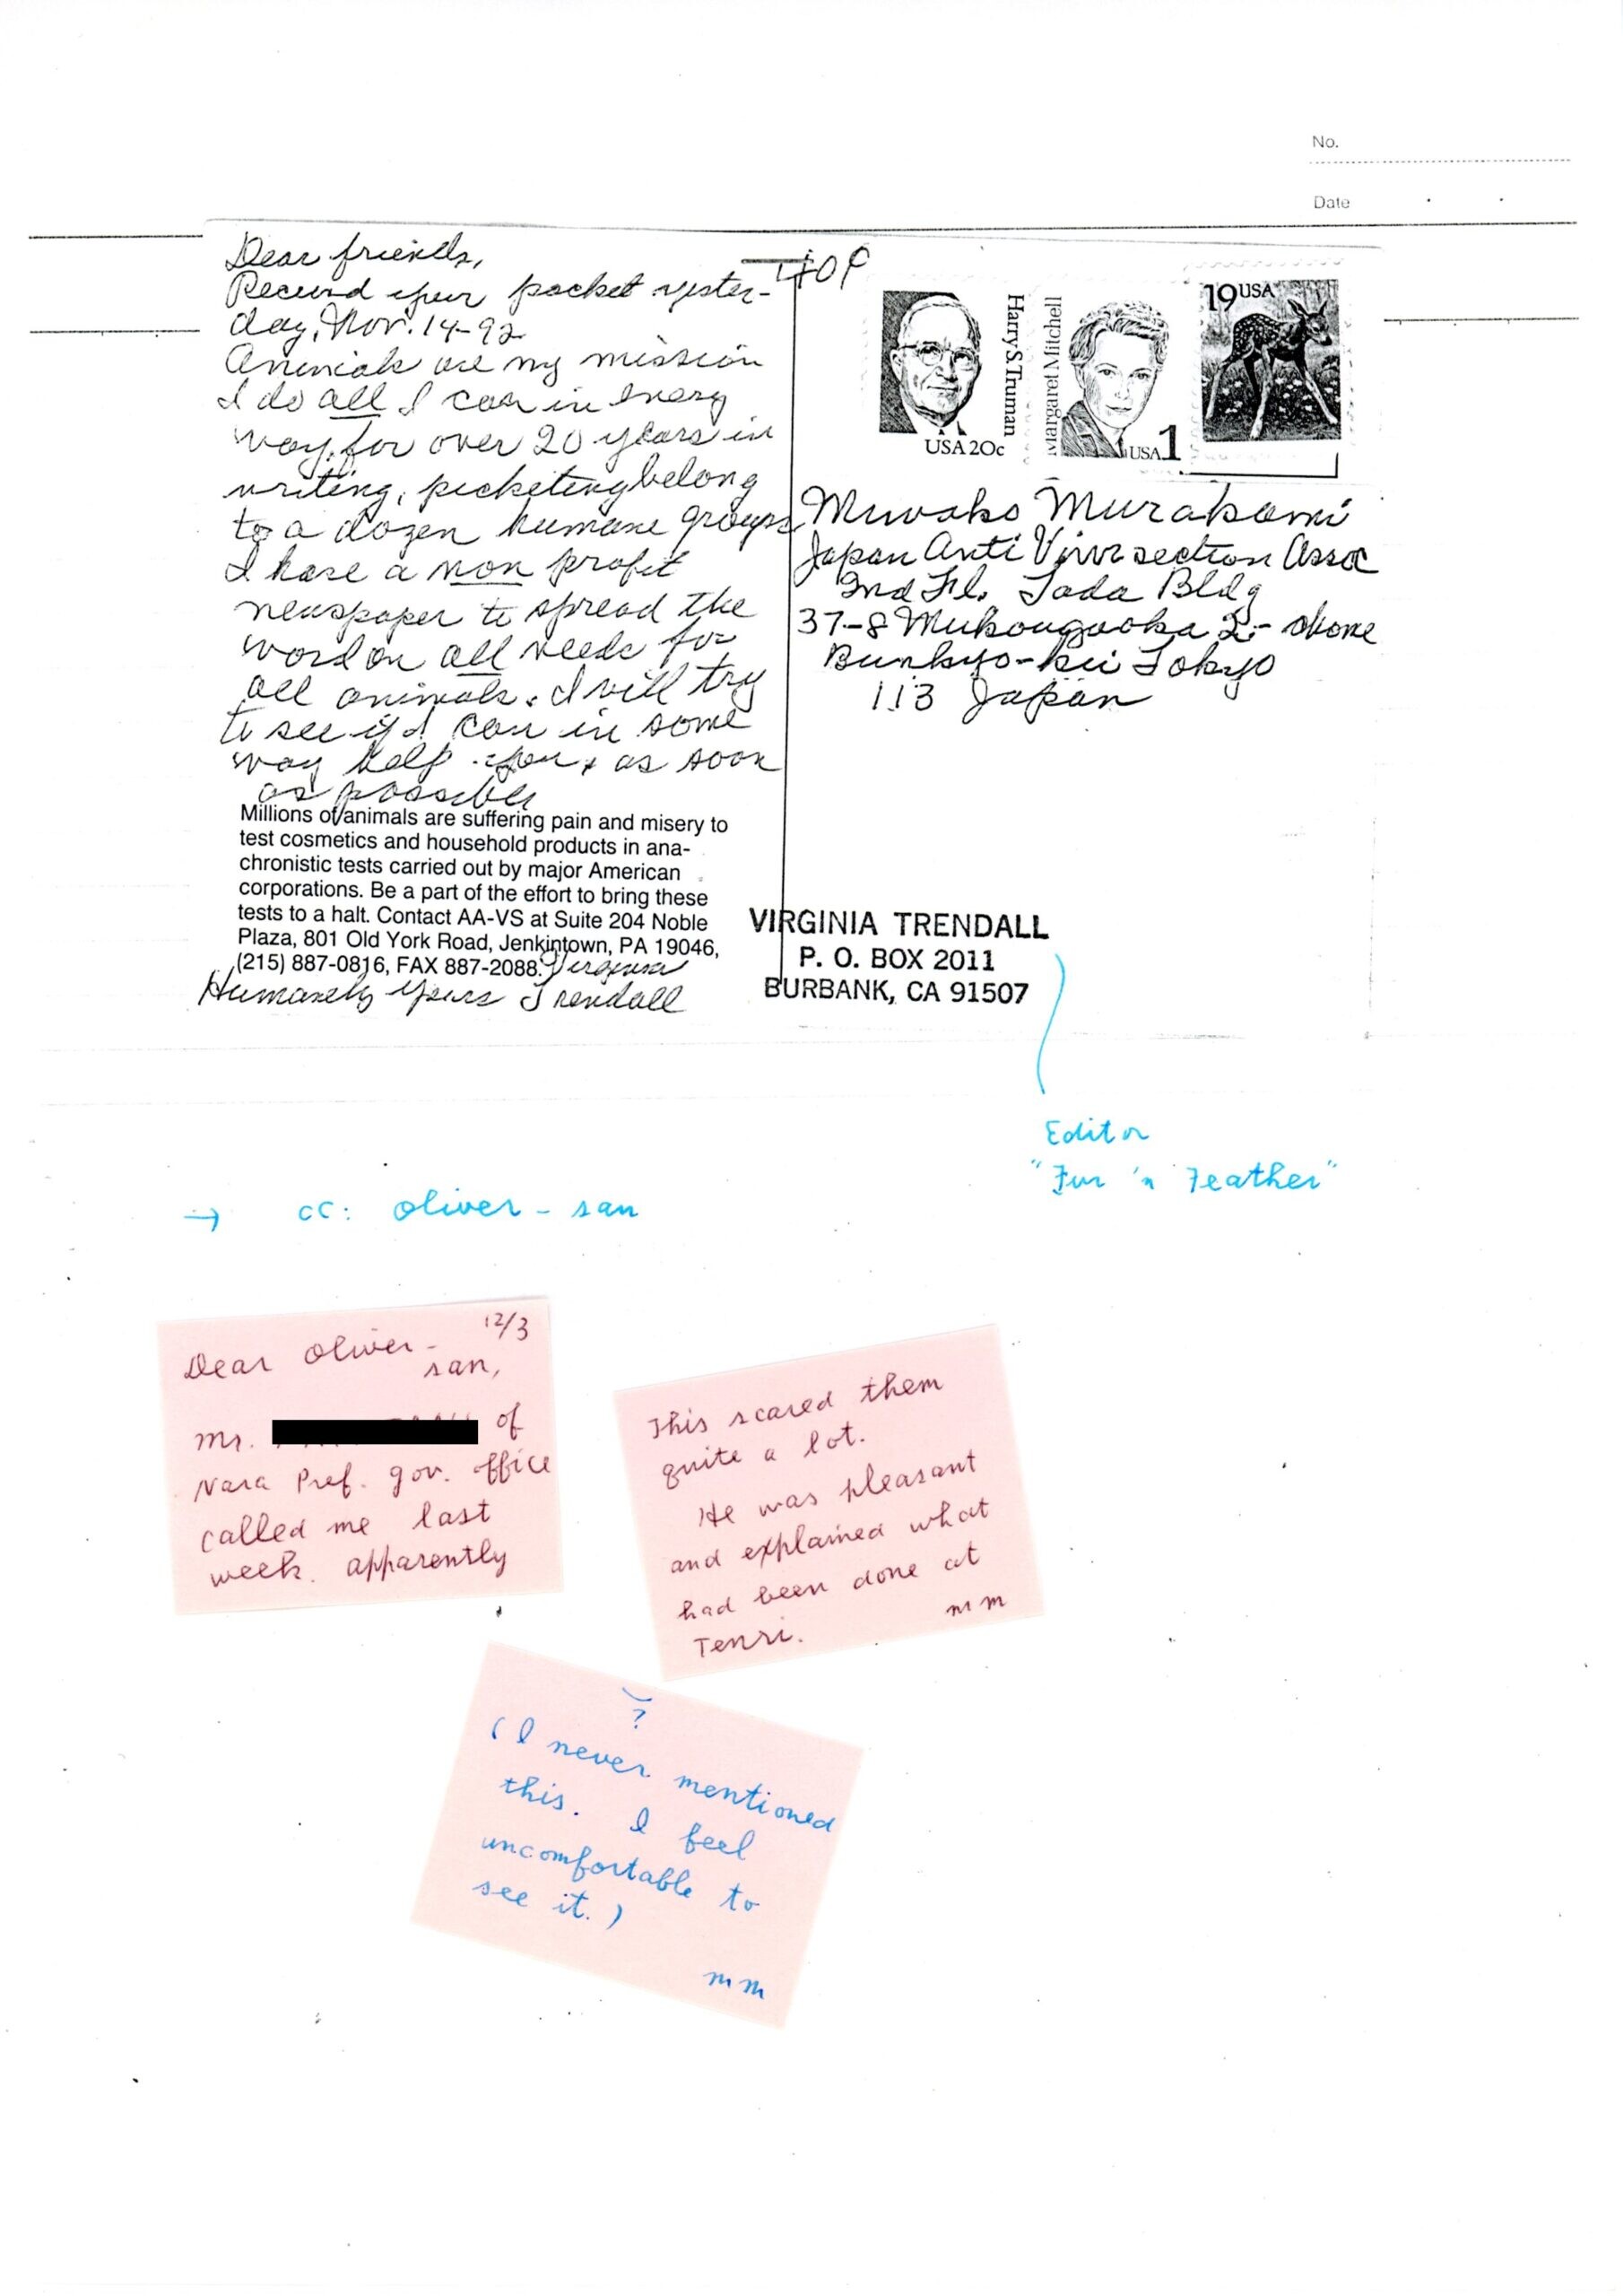 No.
Date
Dear friends,
Received your packet yester-
day, Nov. 14-92
Animals are my mission
I do all I can in every
way, for over 20 years in
writing, picketing belong
to a dozen humane groups
I have a non profit
newspaper to spread the
word on all needs for
all animals. I will try
to see if I can in some
way help you, as soon
as possible
Millions of animals are suffering pain and misery to
test cosmetics and household products in ana-
chronistic tests carried out by major American
corporations. Be a part of the effort to bring these
tests to a halt. Contact AA-VS at Suite 204 Noble
Plaza, 801 Old York Road, Jenkintown, PA 19046,
(215) 887-0816, FAX 887-2088.
Humanely yours Virginia Trendall
40¢
Harry S. Truman
USA 20c
Margaret Mitchell
USA 1
19 USA
Miwako Murakami
Japan Anti Vivisection Assoc
2nd Fl. Tada Bldg
37-8 Mukougaoka 2- chome
Bunkyo-ku Tokyo
113 Japan
VIRGINIA TRENDALL
P. O. BOX 2011
BURBANK, CA 91507
Editor
"Fur 'n Feather"
→ cc: Oliver-san
12/3
Dear Oliver-
san,
Mr. of
Nara Pref. gov. office
called me last
week. apparently
This scared them
quite a lot.
He was pleasant
and explained what
had been done at
Tenri. mm
?
(I never mentioned
this. I feel
uncomfortable to
see it.)
mm